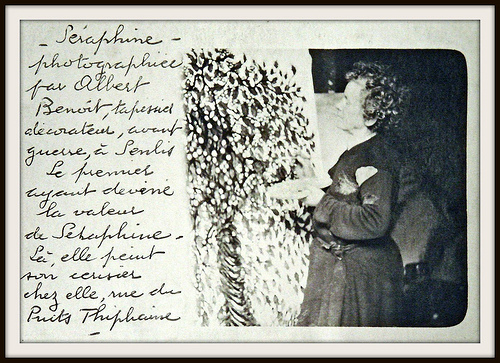 - Séraphine -
photographiée
par Albert
Benoît, tapissier
décorateur, avant
guerre, à Senlis
Le premier
ayant deviné
la valeur
de Séraphine -
Là, elle peint
son cerisier
chez elle, rue du
Puits Thiphaine
-